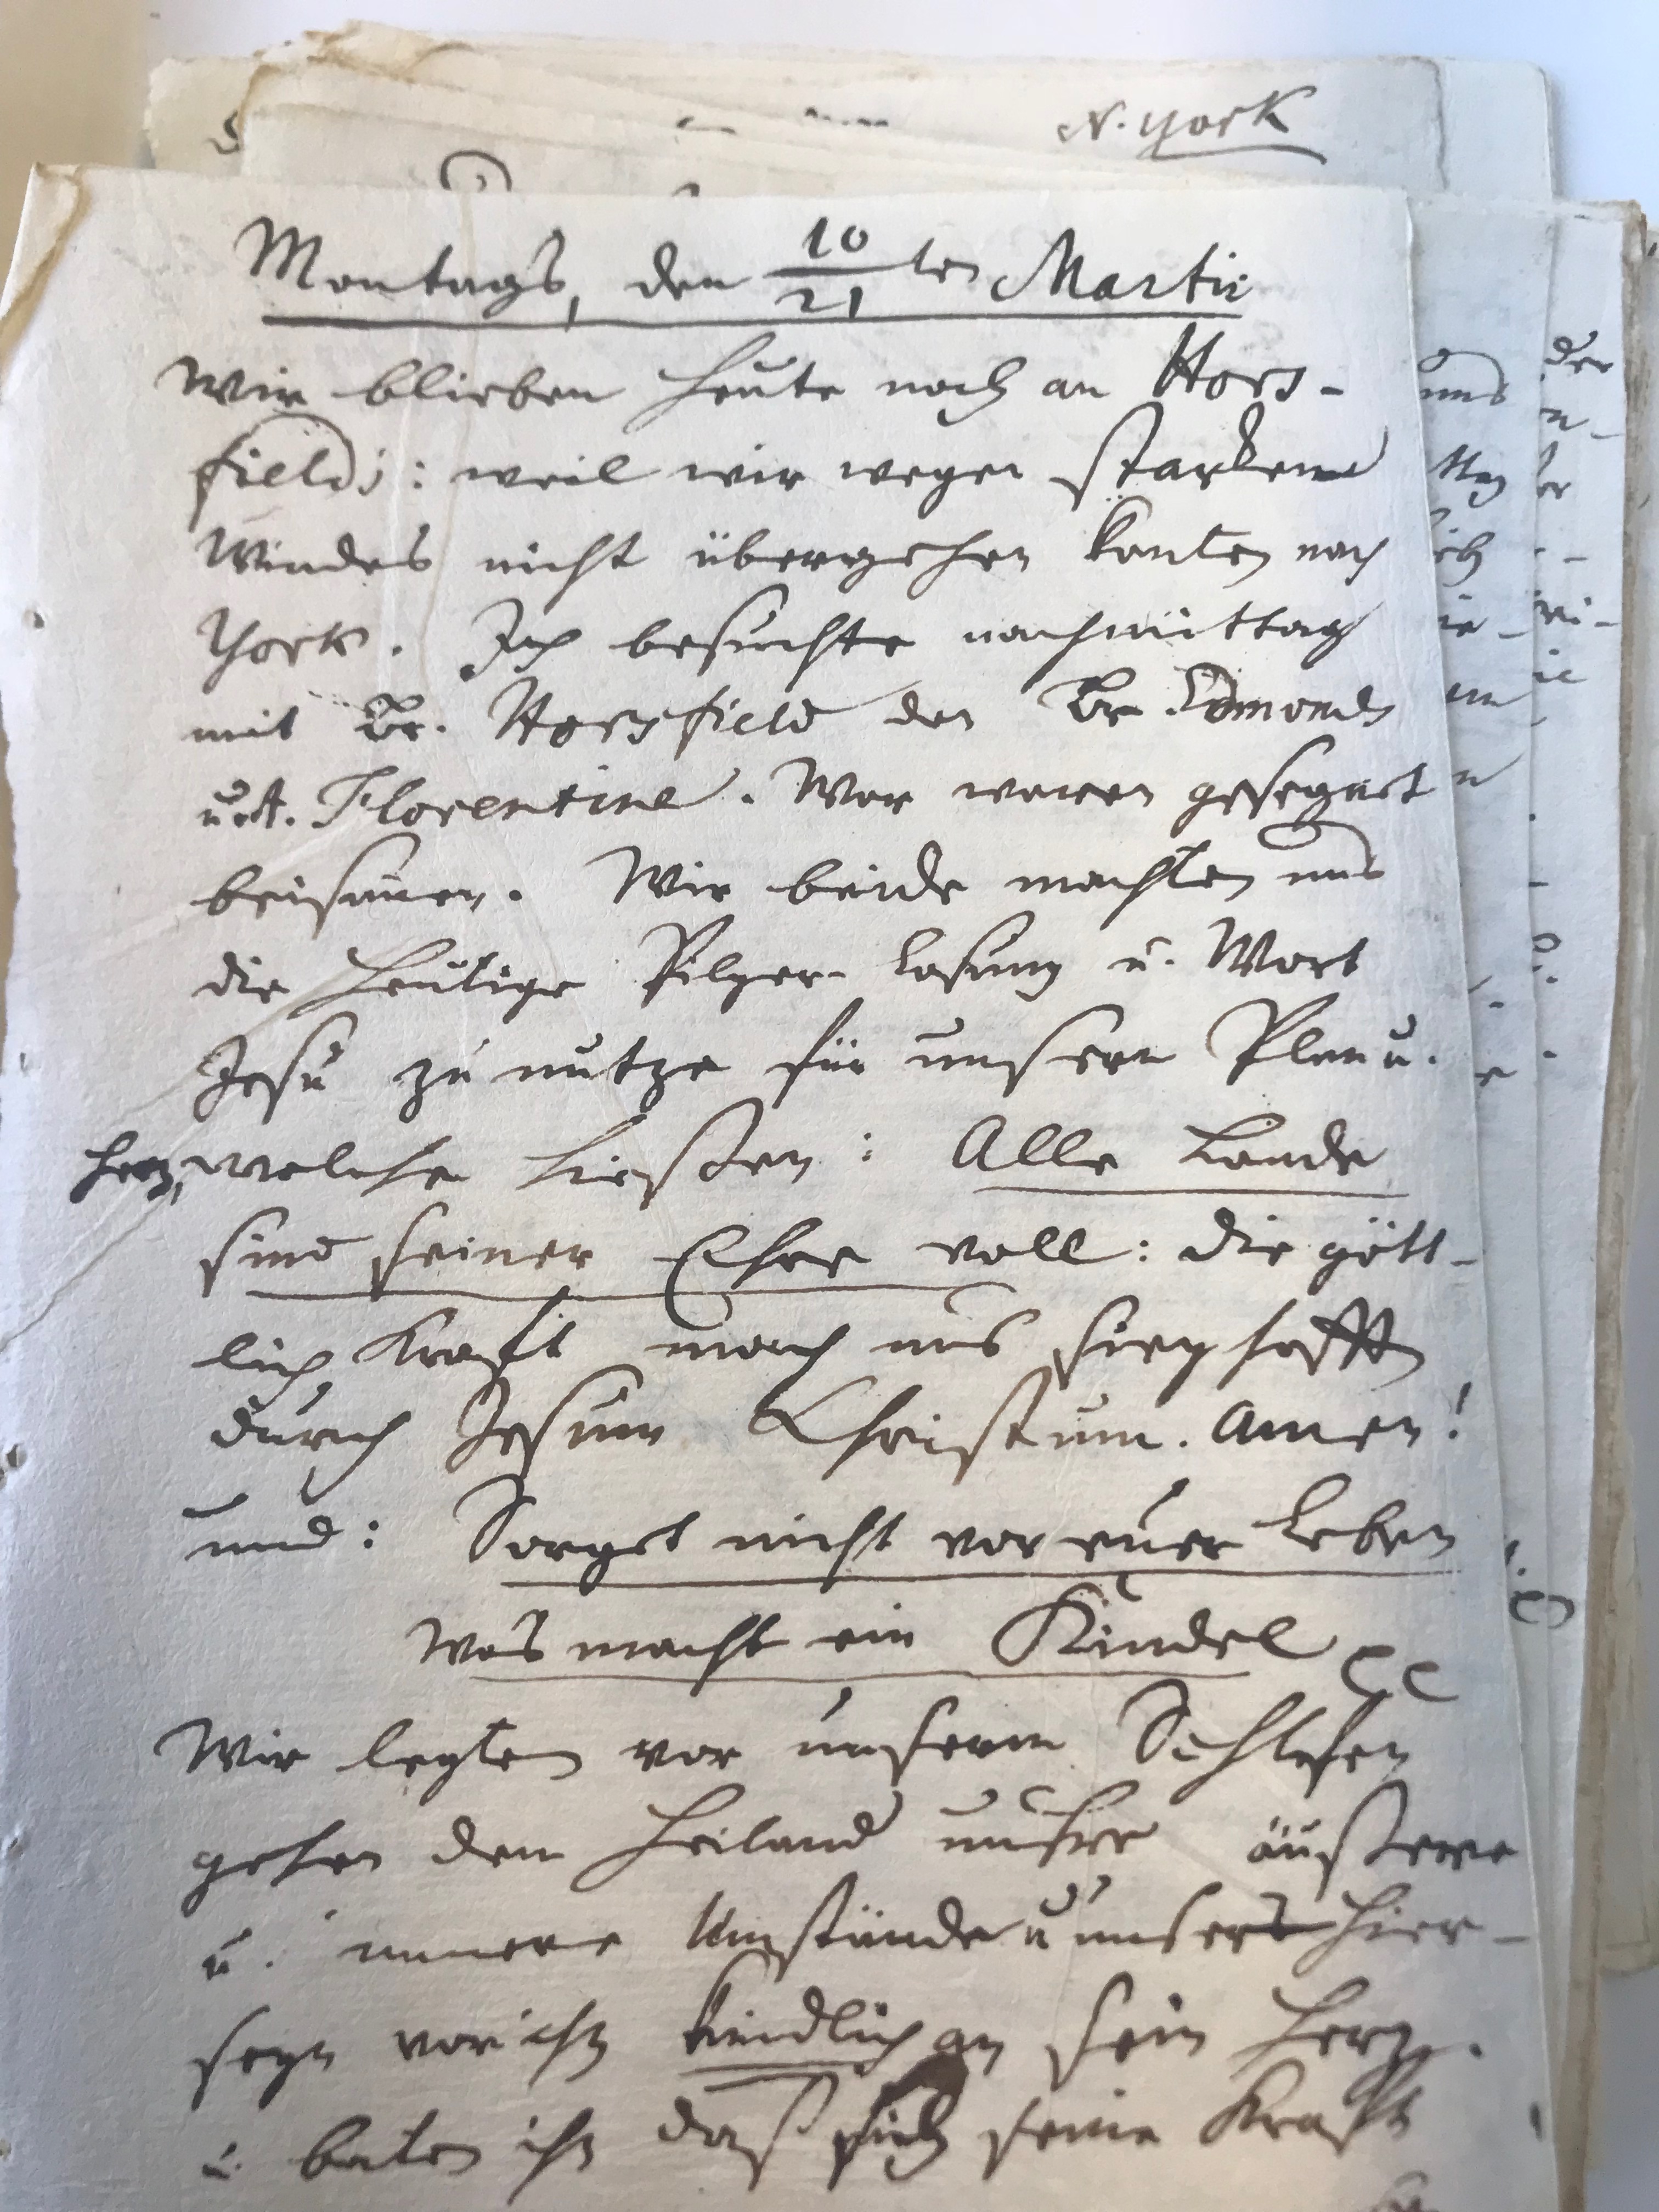 N. York
Montags, den 10/21 ten Martii
Wir blieben heute noch an Hors-
fields: weil wir wegen starkem
Windes nicht übergehen konten nach
York. Ich besuchte nachmittag
mit Br. Horsfield den Br. Edmonds
u. A. Florentine. War waren gesegnet
beisamen. Wir beide machten uns
die heutige Pilger-Losung u. Wort
Jesu zu nutze für unsern Plan u.
herz, welche hießen: Alle Lande
sind seiner Ehre voll: die gött-
lich Kraft mach uns sieghafft
durch Jesum Christum. Amen!
und: Sorget nicht vor euer Leben
Was macht ein Kindel
Wir legten vor unserm Schlafen
gehen dem Heiland unsre äußere
u. innere Umstände u unser hier-
seyn vor itzt kindlich an sein Herz.
u. baten ihn daß sich seine Kraft